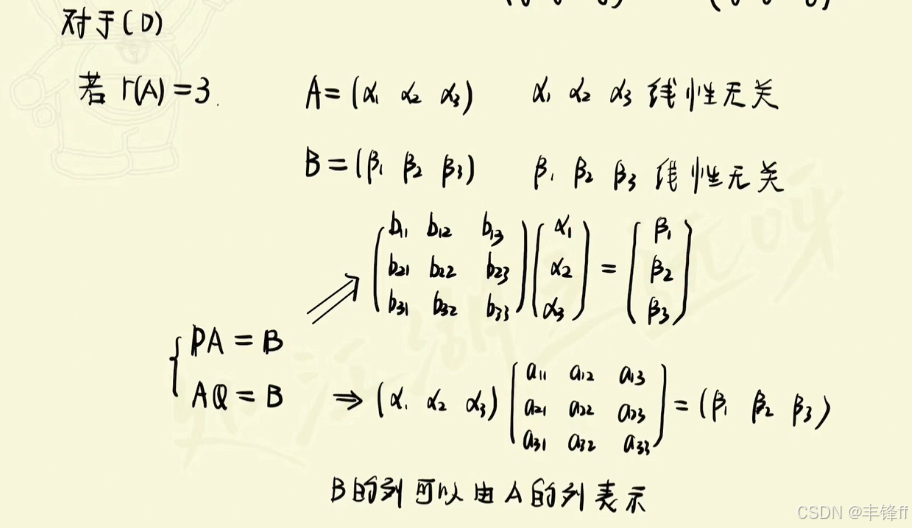 对于(D)
若 r(A)=3. A=(α₁ α₂ α₃) α₁ α₂ α₃ 线性无关
B=(β₁ β₂ β₃) β₁ β₂ β₃ 线性无关
⇒ (b₁₁ b₁₂ b₁₃
b₂₁ b₂₂ b₂₃
b₃₁ b₃₂ b₃₃) (α₁
α₂
α₃) = (β₁
β₂
β₃)
{ PA = B
AQ = B ⇒ (α₁ α₂ α₃) [a₁₁ a₁₂ a₁₃
a₂₁ a₂₂ a₂₃
a₃₁ a₃₂ a₃₃] = (β₁ β₂ β₃)
B的列可以由A的列表示
CSDN @丰锋ff